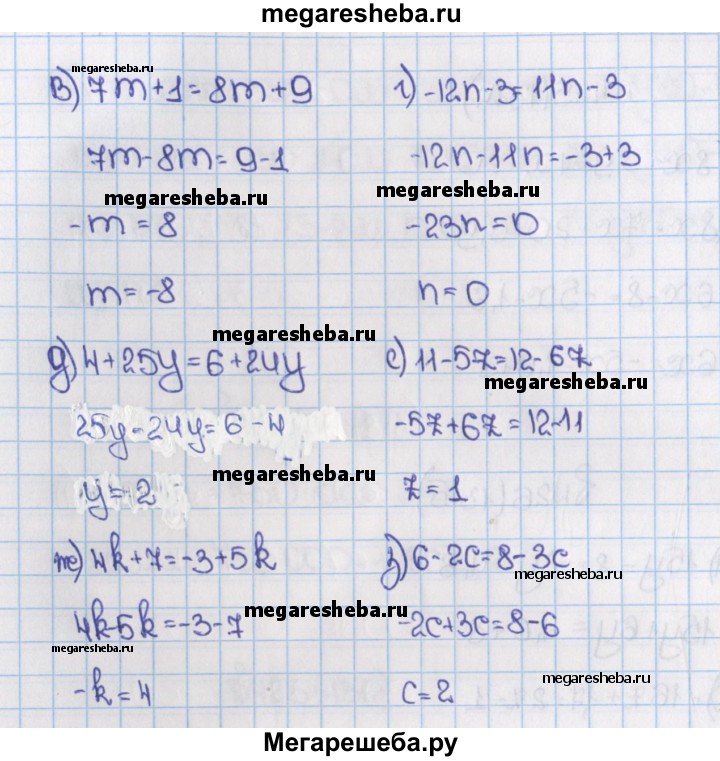 megaresheba.ru
megaresheba.ru
megaresheba.ru
в) 7m+1=8m+9
7m-8m=9-1
megaresheba.ru
-m=8
m=-8
г) -12n-3=11n-3
-12n-11n=-3+3
megaresheba.ru
-23n=0
n=0
megaresheba.ru
д) 4+25y=6+24y
25y-24y=6-4
megaresheba.ru
y=2
е) 11-5z=12-6z
megaresheba.ru
-5z+6z=12-11
z=1
ж) 4k+7=-3+5k
4k-5k=-3-7
megaresheba.ru
megaresheba.ru
-k=4
з) 6-2c=8-3c
megaresheba.ru
-2c+3c=8-6
c=2
megaresheba.ru
Мегарешеба.ру